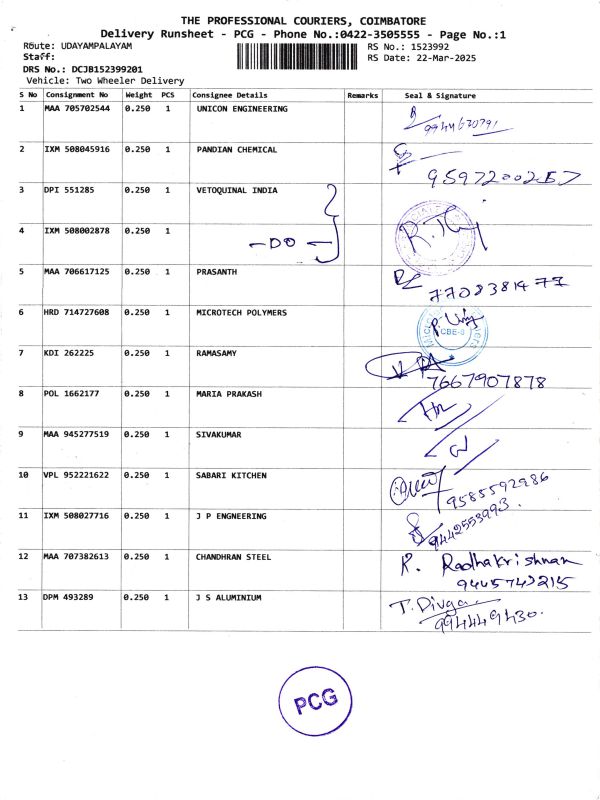 THE PROFESSIONAL COURIERS, COIMBATORE
Delivery Runsheet - PCG - Phone No.:0422-3505555 - Page No.:1
Route: UDAYAMPALAYAM RS No.: 1523992
Staff: RS Date: 22-Mar-2025
DRS No.: DCJB152399201
Vehicle: Two Wheeler Delivery
S No Consignment No Weight PCS Consignee Details Remarks Seal & Signature
1 MAA 705702544 0.250 1 UNICON ENGINEERING 9944630791
2 IXM 508045916 0.250 1 PANDIAN CHEMICAL 9597200257
3 DPI 551285 0.250 1 VETOQUINAL INDIA
4 IXM 508002878 0.250 1 -DO-
5 MAA 706617125 0.250 1 PRASANTH 7708381477
6 HRD 714727608 0.250 1 MICROTECH POLYMERS CBE-6
7 KDI 262225 0.250 1 RAMASAMY 7667907878
8 POL 1662177 0.250 1 MARIA PRAKASH
9 MAA 945277519 0.250 1 SIVAKUMAR
10 VPL 952221622 0.250 1 SABARI KITCHEN 9585592986
11 IXM 508027716 0.250 1 J P ENGNEERING 9442553993.
12 MAA 707382613 0.250 1 CHANDHRAN STEEL R. Radhakrishnan
9445743215
13 DPM 493289 0.250 1 J S ALUMINIUM T. Divya
9944449430.
PCG